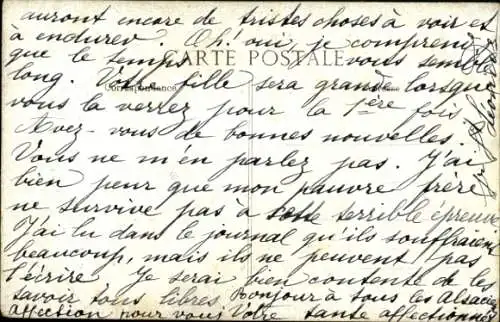 auront encore de tristes choses à voir et
à endurer. Oh! oui je comprend
que le temps vous semble
CARTE POSTALE
long. Votre fille sera grande lorsque
Correspondance
vous la verrez pour la 1ère fois
Avez-vous de bonnes nouvelles.
Vous ne m'en parlez pas. J'ai
bien peur que mon pauvre frère
ne survive pas à cette terrible épreuve
J'ai lu dans le journal qu'ils souffraient
beaucoup, mais ils ne peuvent pas
l'écrire. Je serai bien contente de les
savoir tous libres. Bonjour à tous les Alsaciens
affection pour vous Votre tante affectionnée